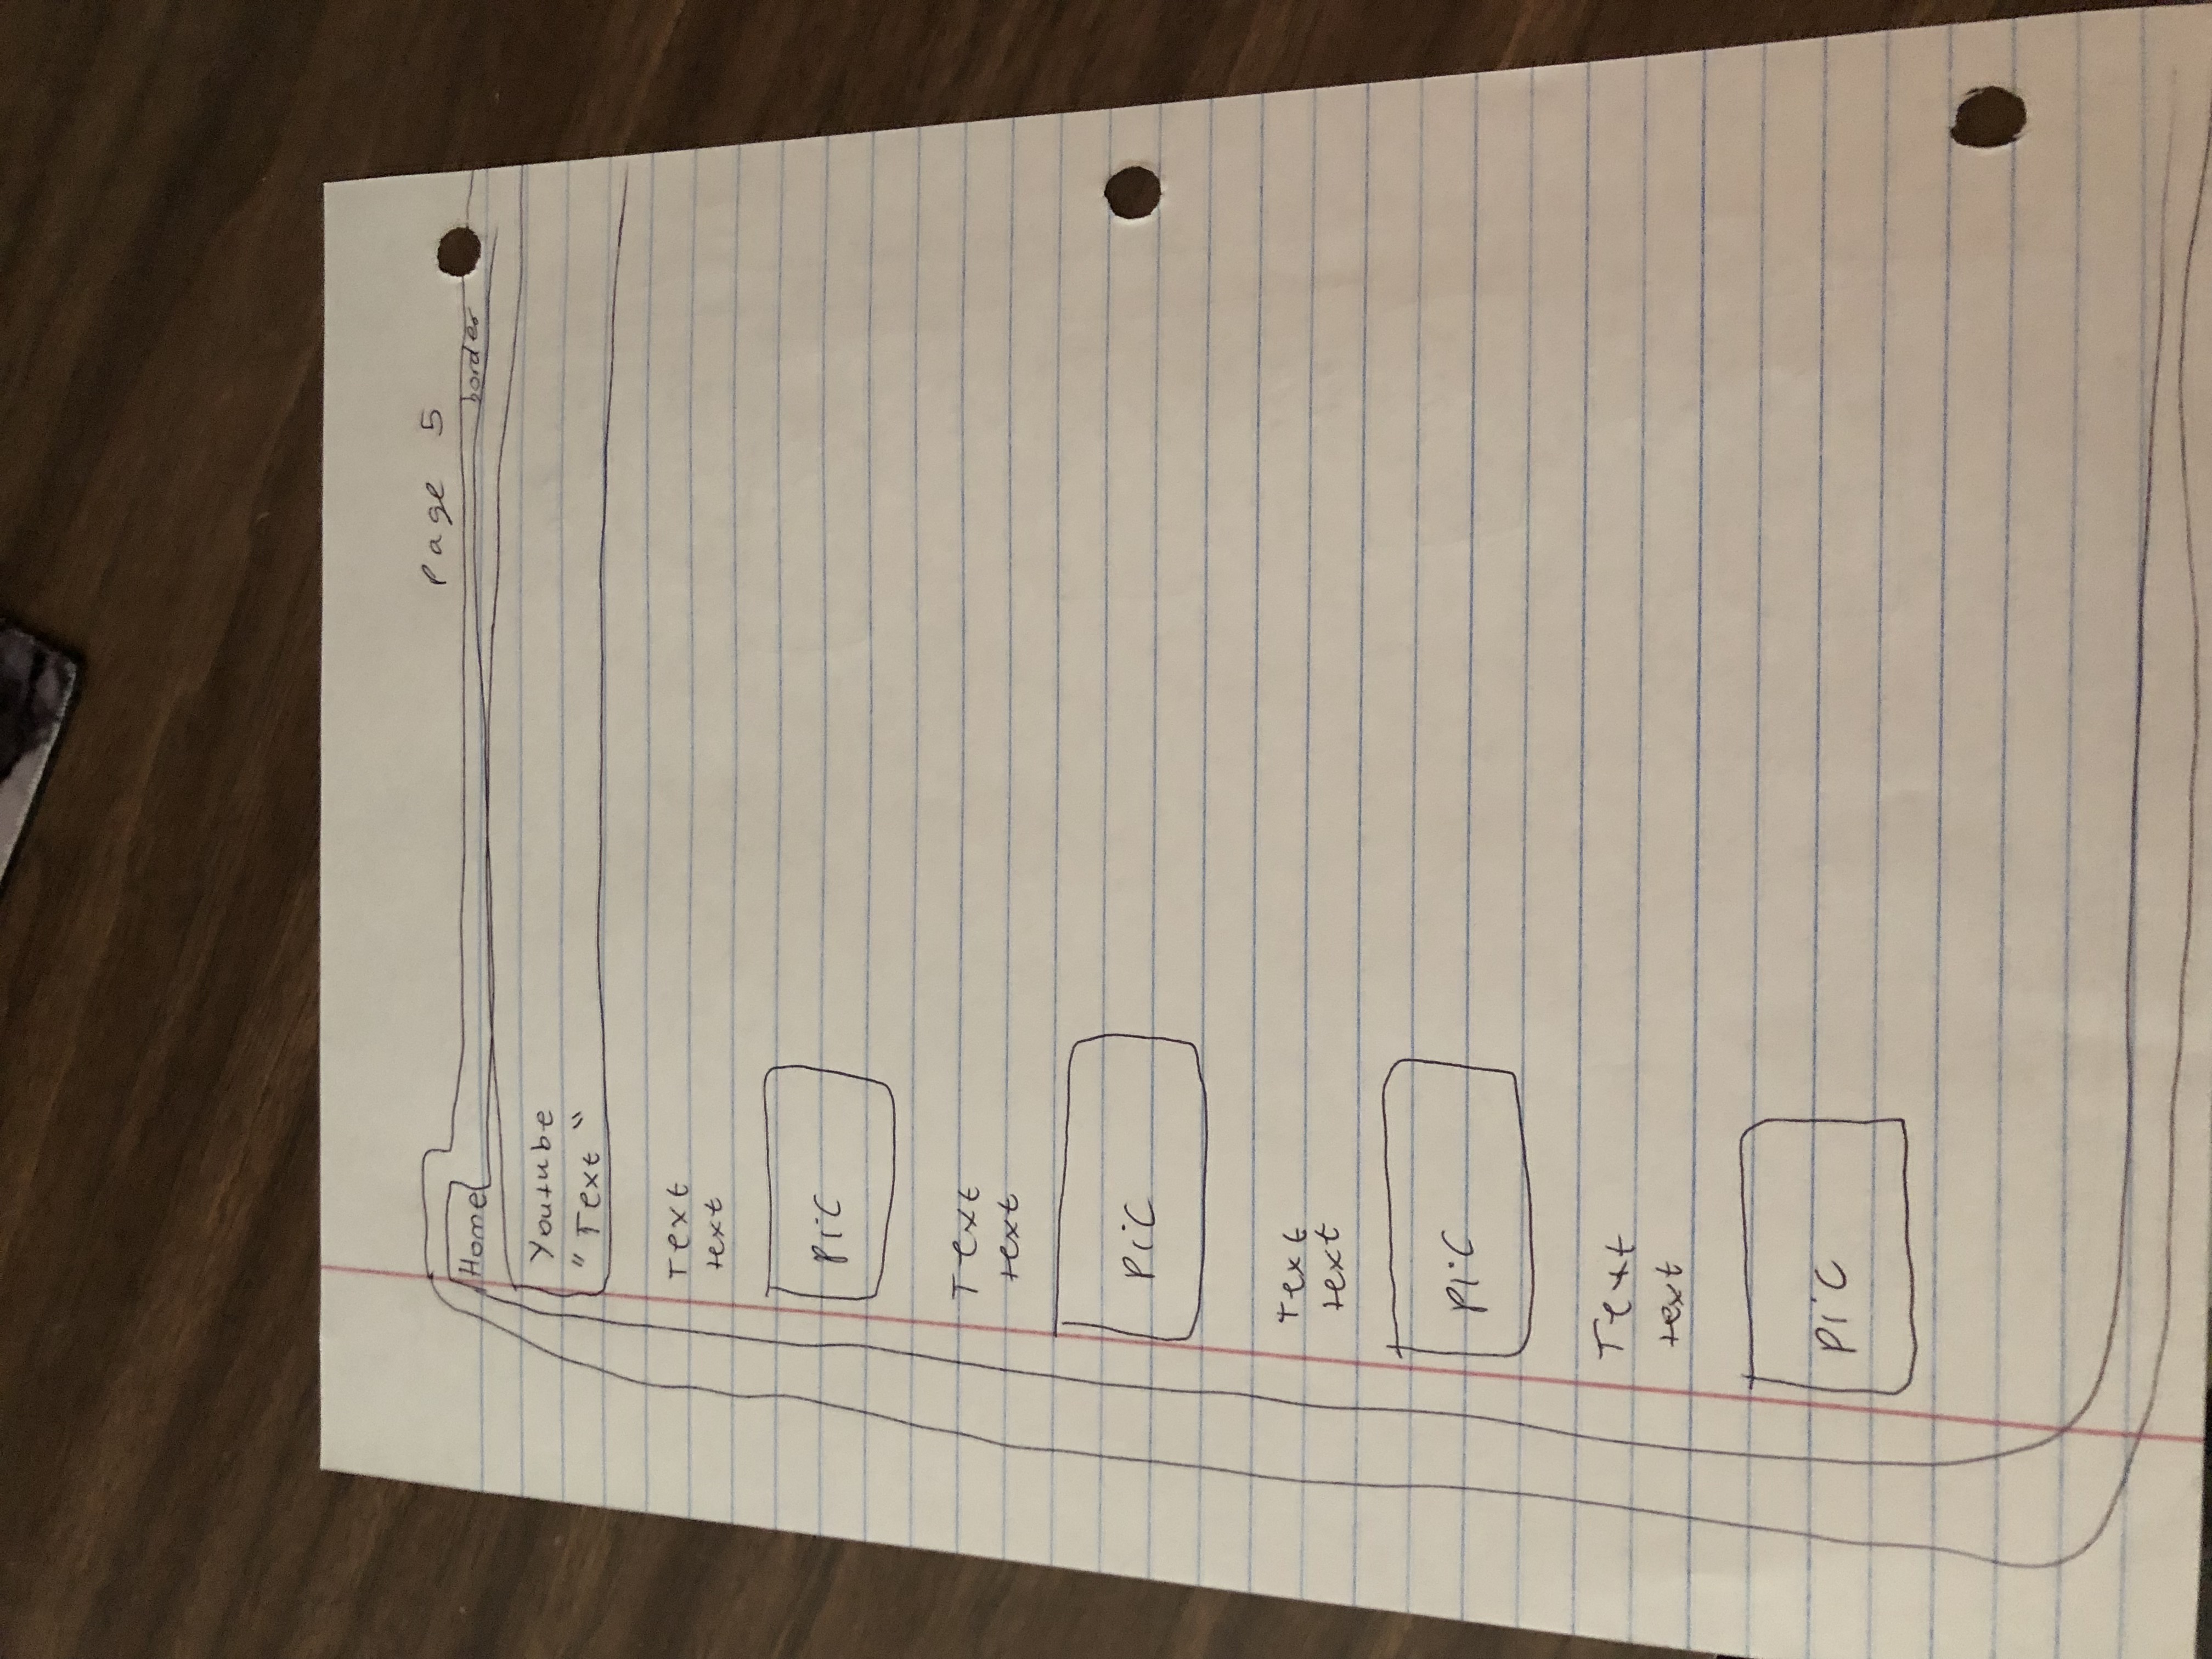 Page 5
Home
border
Youtube
"Text"
Text
text
pic
Text
text
pic
Text
text
pic
Text
text
pic